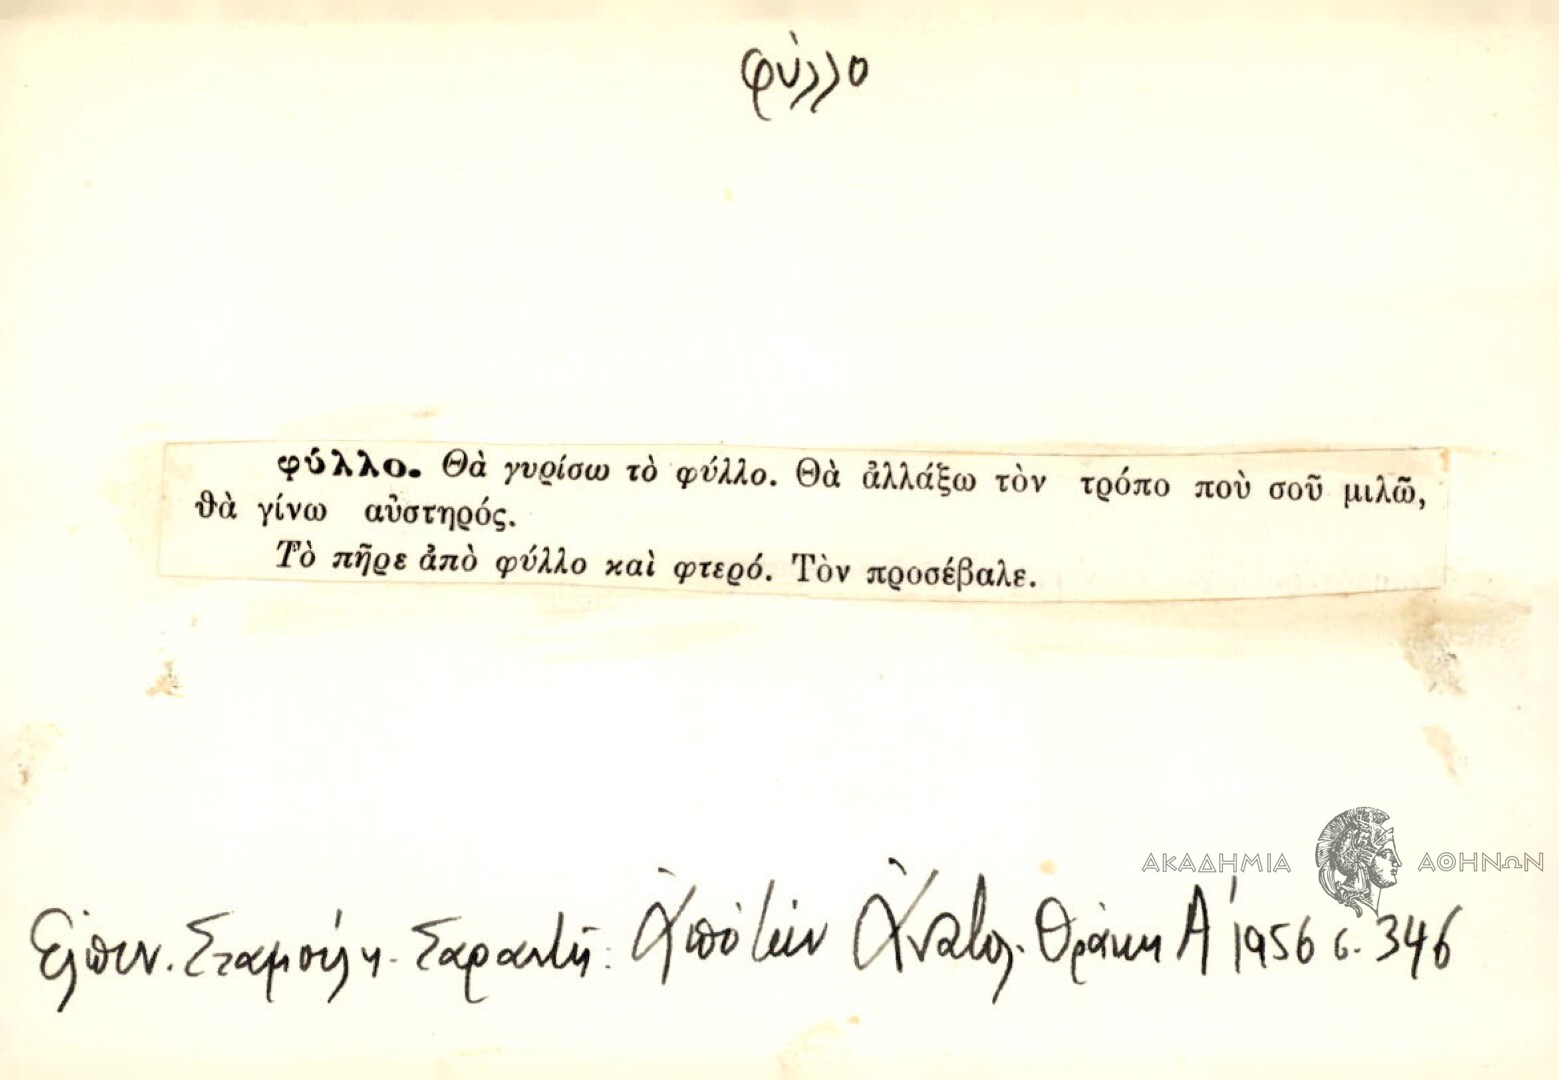 φύλλο
φύλλο. Θὰ γυρίσω τὸ φύλλο. Θὰ ἀλλάξω τὸν τρόπο ποὺ σοῦ μιλῶ,
θὰ γίνω αὐστηρός.
Τὸ πῆρε ἀπὸ φύλλο καὶ φτερό. Τὸν προσέβαλε.
ΑΚΑΔΗΜΙΑ ΑΘΗΝΩΝ
Ἐλπιν. Σταμούλη - Σαραντῆ: Ἀπὸ τὴν Ἀνατολ. Θράκη Α' 1956 σ. 346